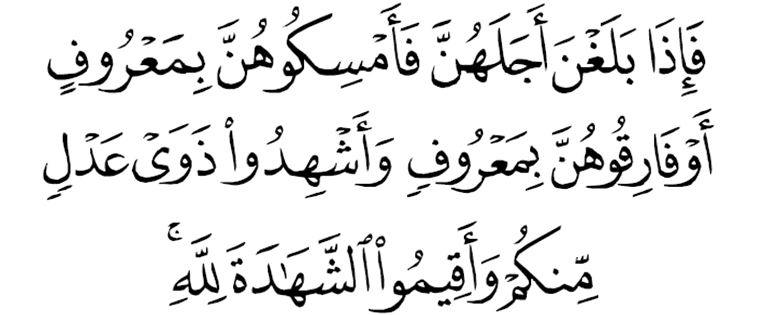 فَإِذَا بَلَغۡنَ أَجَلَهُنَّ فَأَمۡسِكُوهُنَّ بِمَعۡرُوفٍ
أَوۡ فَارِقُوهُنَّ بِمَعۡرُوفٖ وَأَشۡهِدُواْ ذَوَيۡ عَدۡلٖ
مِّنكُمۡ وَأَقِيمُواْ ٱلشَّهَٰدَةَ لِلَّهِۚ